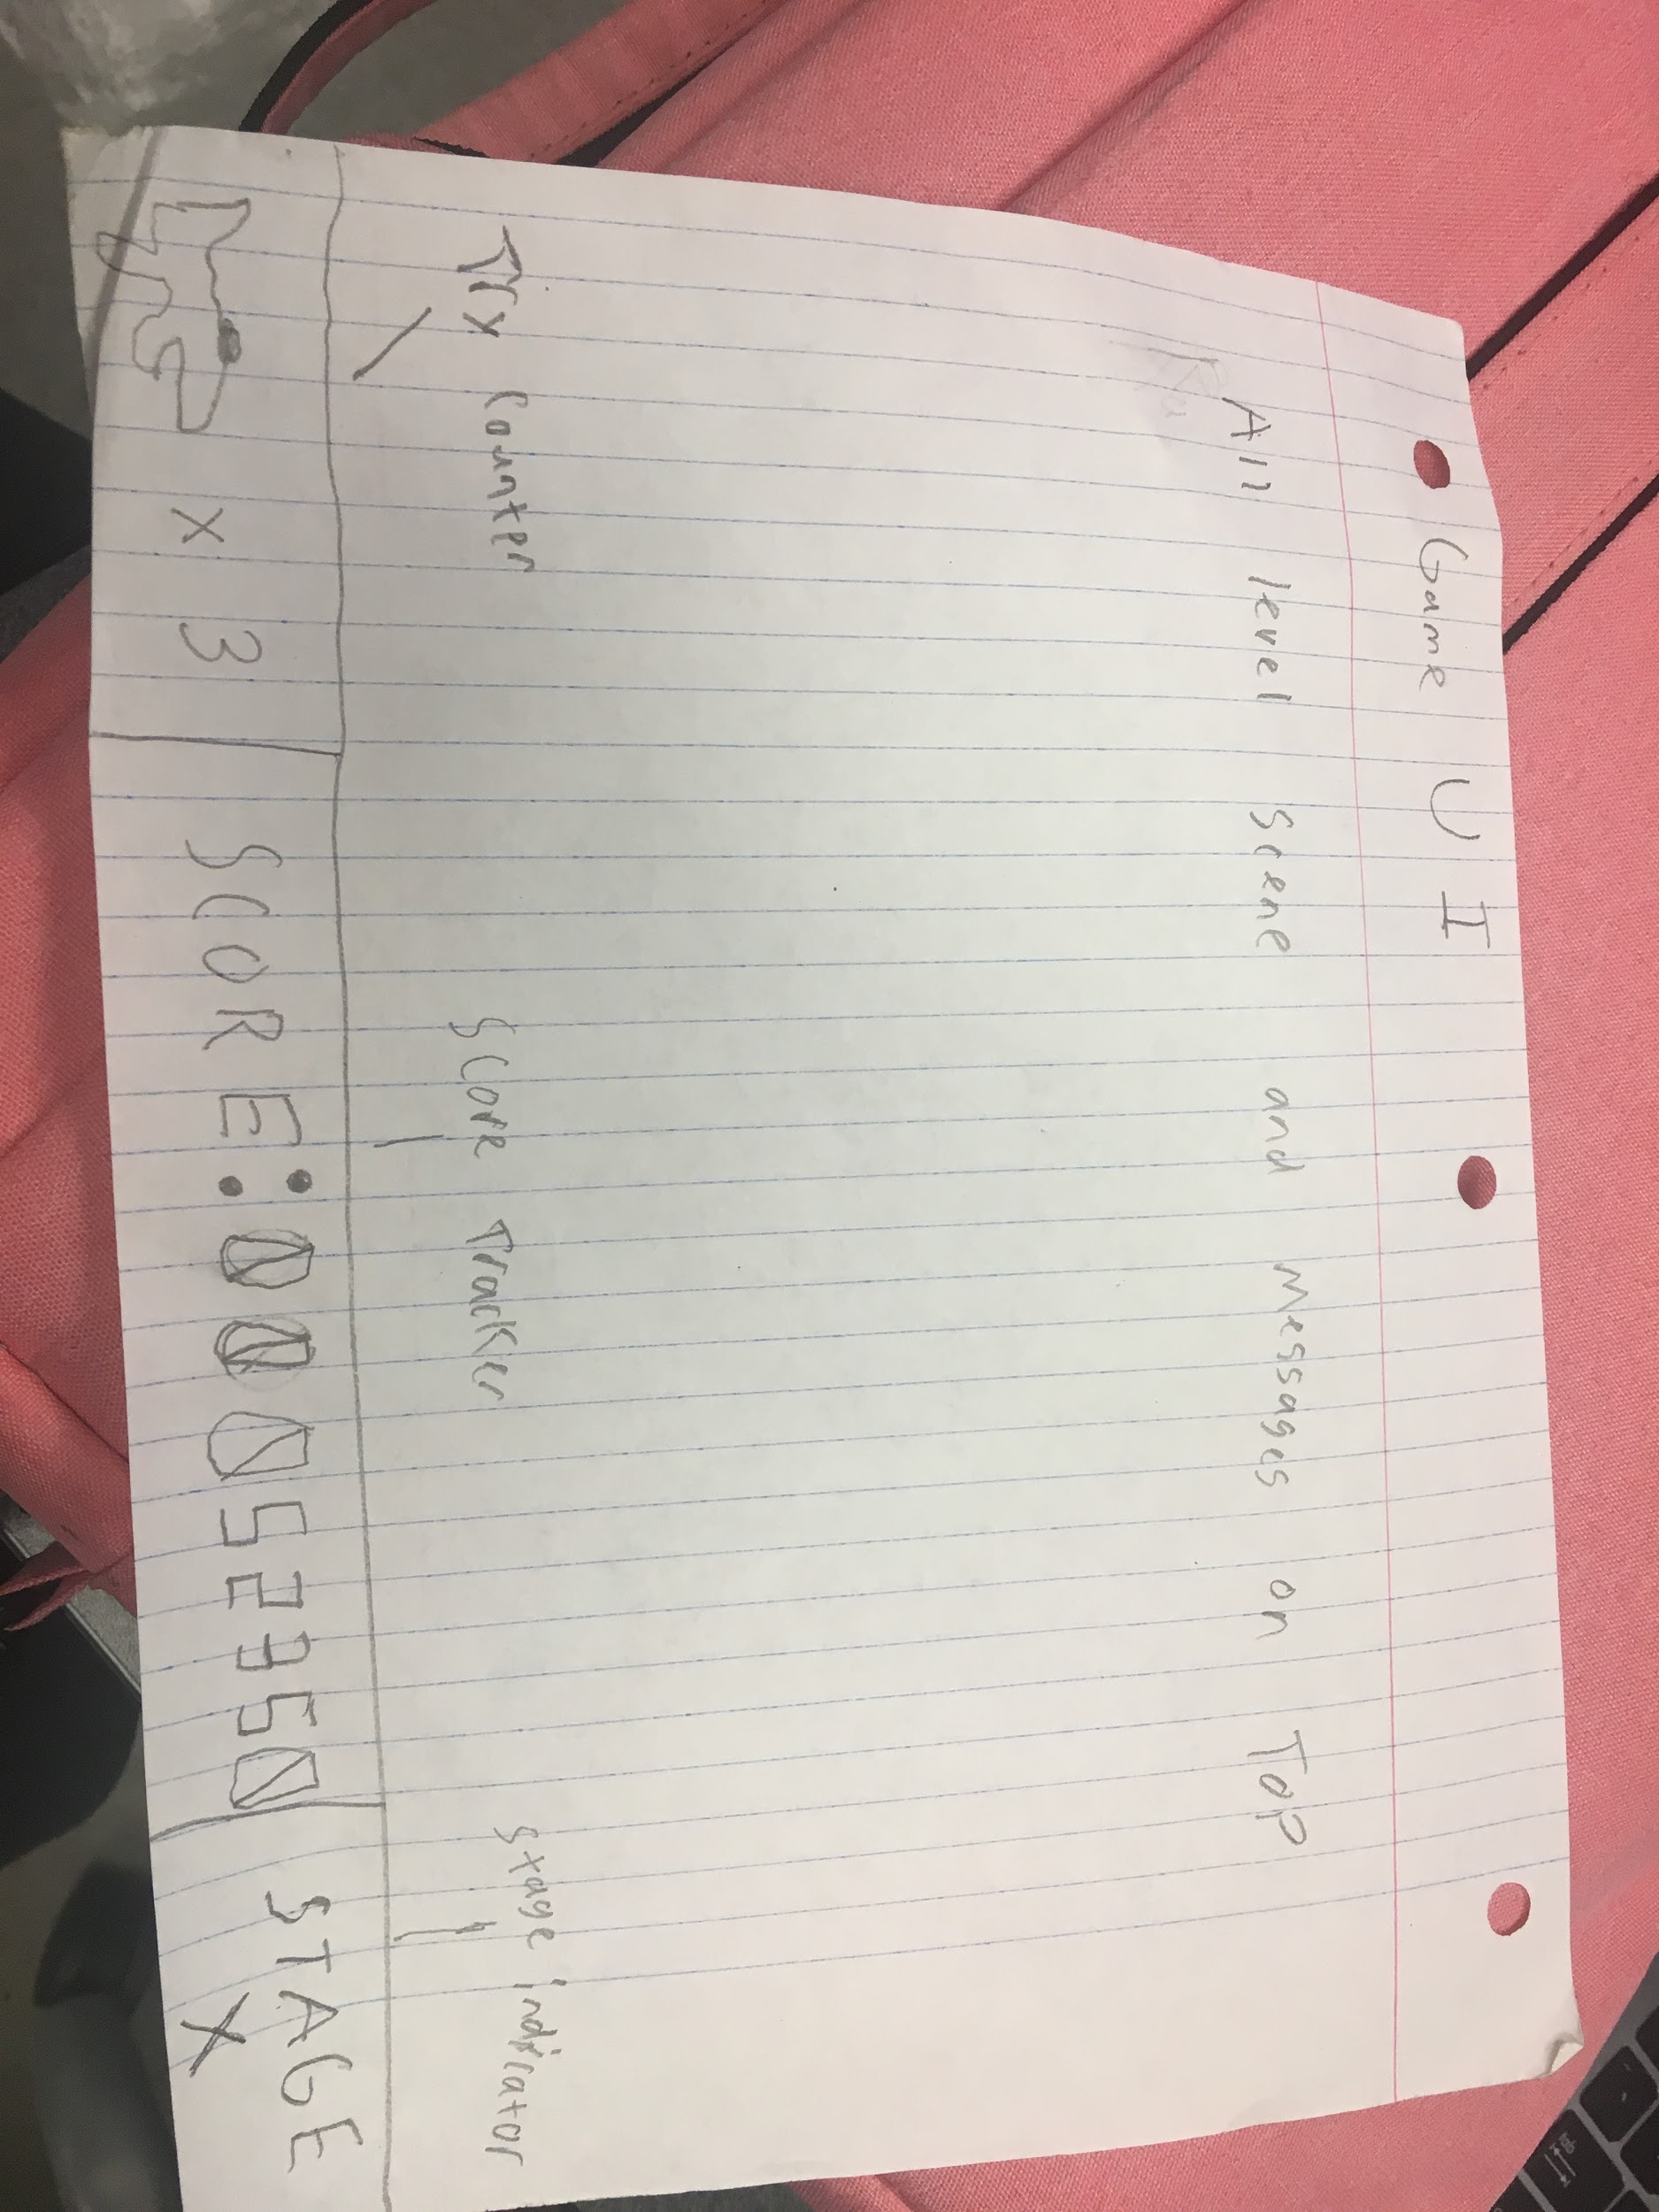 Game UI
All level scene and messages on Top
Try Counter
Score Tracker
Stage indicator
x 3
SCORE:00052350
STAGE
X